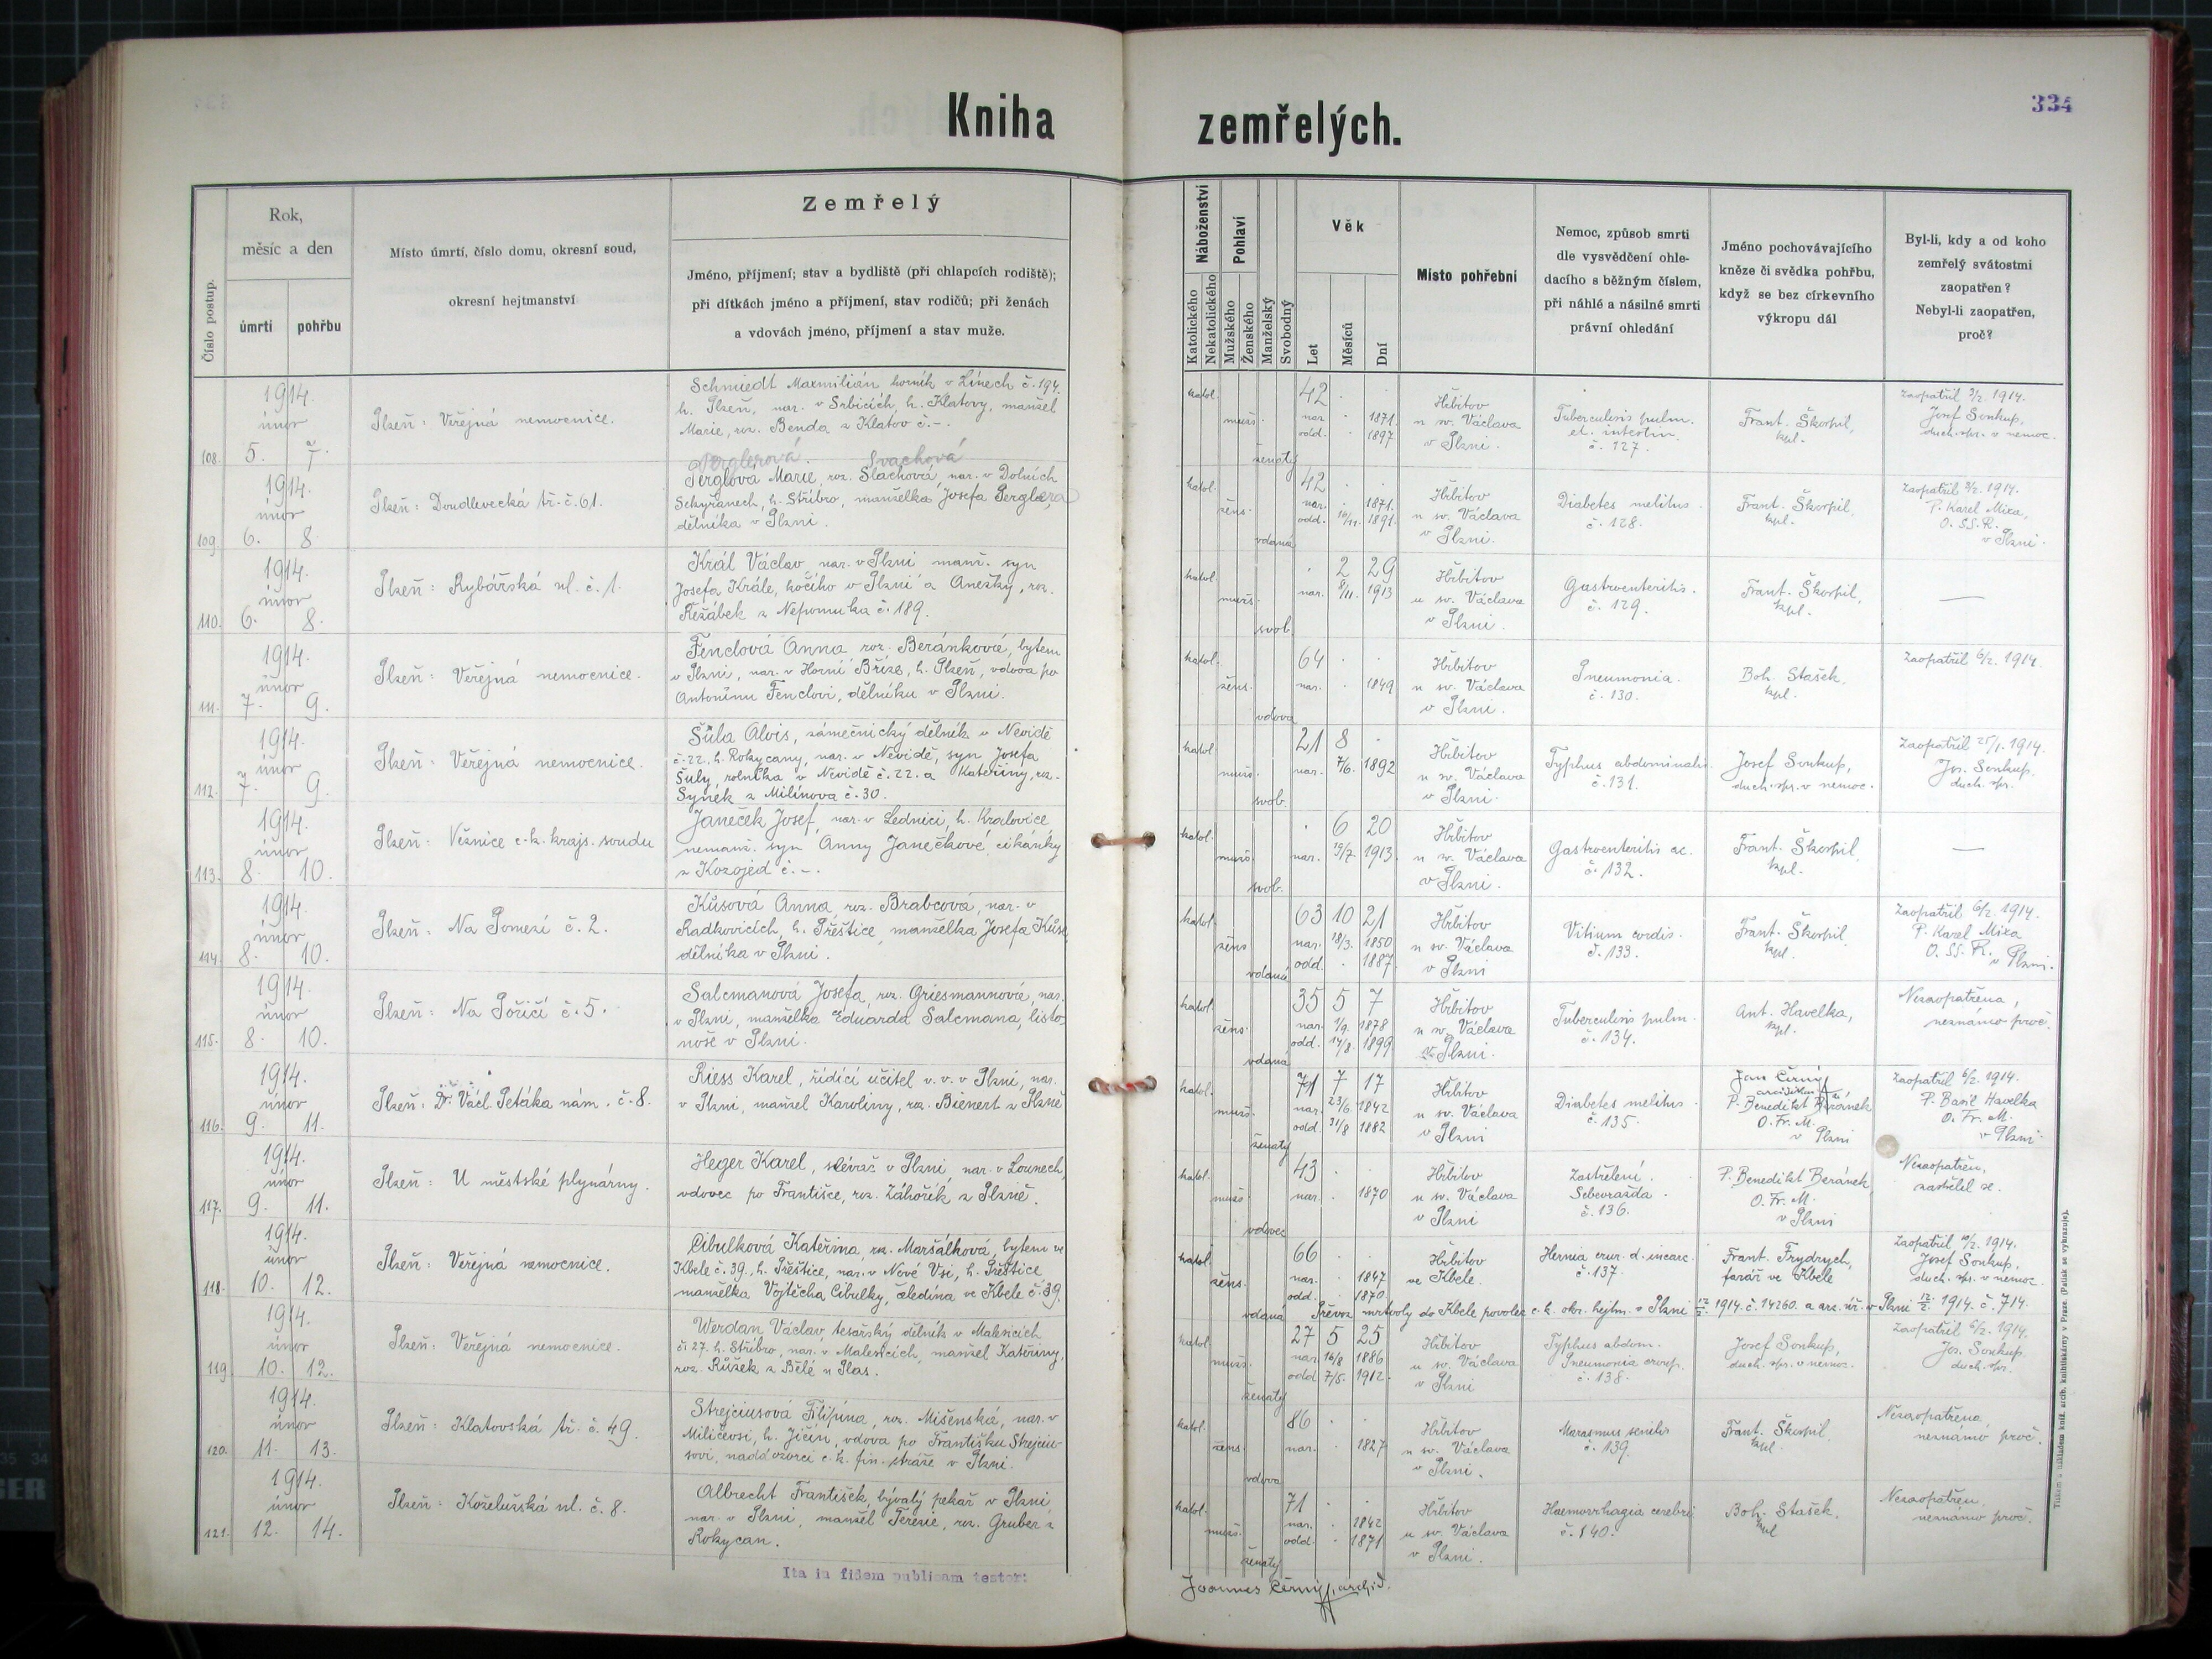 Kniha zemřelých.
334
Číslo postup.
Rok,
měsíc a den
úmrtí
pohřbu
Místo úmrtí, číslo domu, okresní soud,
okresní hejtmanství
Zemřelý
Jméno, příjmení; stav a bydliště (při chlapcích rodiště);
při dítkách jméno a příjmení, stav rodičů; při ženách
a vdovách jméno, příjmení a stav muže.
Náboženství
Katolického
Nekatolického
Pohlaví
Mužského
Ženského
Manželský
Svobodný
Věk
Let
Měsíců
Dní
Místo pohřební
Nemoc, způsob smrti
dle vysvědčení ohle-
dacího s běžným číslem,
při náhlé a násilné smrti
právní ohledání
Jméno pochovávajícího
kněze či svědka pohřbu,
když se bez církevního
výkropu dál
Byl-li, kdy a od koho
zemřelý svátostmi
zaopatřen?
Nebyl-li zaopatřen,
proč?
108.
1914.
únor
5. 7.
Plzeň: Veřejná nemocnice.
Schmiedt Maxmilián horník v Línech č. 194.
h. Plzeň, nar. v Srbicích, h. Klatovy, manžel
Marie, roz. Benda z Klatov č. -.
katol.
muž.
ženatý
42
nar. 1871.
odd. 1897.
Hřbitov
u sv. Václava
v Plzni.
Tuberculosis pulm.
et. intestin.
č. 127.
Frant. Škorpil,
kpl.
Zaopatřil 3/2. 1914.
Josef Soukup,
duch. spr. v nemoc.
109.
1914.
únor
6. 8.
Plzeň: Doudlevecká tř. č. 61.
Perglerová Svachová
Perglova Marie, roz. Slachová, nar. v Dolních
Sekyřanech, h. Stříbro, manželka Josefa Perglera,
dělníka v Plzni.
katol.
žens.
vdaná
42
nar. 1871.
odd. 16/11. 1891.
Hřbitov
u sv. Václava
v Plzni.
Diabetes melitus.
č. 128.
Frant. Škorpil,
kpl.
Zaopatřil 3/2. 1914.
P. Karel Mixa,
O. SS. R.
v Plzni.
110.
1914.
únor
6. 8.
Plzeň: Rybářská ul. č. 1.
Král Václav nar. v Plzni manž. syn
Josefa Krále, kočího v Plzni a Anežky, roz.
Režábek z Nepomuka č. 189.
katol.
muž.
svob.
2 29
nar. 8/11. 1913
Hřbitov
u sv. Václava
v Plzni.
Gastroenteritis.
č. 129.
Frant. Škorpil,
kpl.
—
111.
1914.
únor
7. 9.
Plzeň: Veřejná nemocnice.
Fenclová Anna roz. Beránková, bytem
v Plzni, nar. v Horní Bříze, h. Plzeň, vdova po
Antonínu Fenclovi, dělníku v Plzni.
katol.
žens.
vdova
64
nar. 1849
Hřbitov
u sv. Václava
v Plzni.
Pneumonia.
č. 130.
Boh. Stašek,
kpl.
Zaopatřil 6/2. 1914.
112.
1914.
únor
7. 9.
Plzeň: Veřejná nemocnice.
Šůla Alois, zámečnický dělník v Nevidě
č. 22. h. Rokycany, nar. v Nevidě, syn Josefa
Šuly, rolníka v Nevidě č. 22. a Kateřiny, roz.
Synék z Milínova č. 30.
katol.
muž.
svob.
21 8
nar. 7/6. 1892
Hřbitov
u sv. Václava
v Plzni.
Typhus abdominalis.
č. 131.
Josef Soukup,
duch. spr. v nemoc.
Zaopatřil 25/1. 1914.
Jos. Soukup.
duch. spr.
113.
1914.
únor
8. 10.
Plzeň: Věznice c. k. krajs. soudu
Janeček Josef, nar. v Lednici, h. Kralovice
nemanž. syn Anny Janečkové, cikánky
z Kozojed č. -.
katol.
muž.
svob.
6 20
nar. 19/7. 1913.
Hřbitov
u sv. Václava
v Plzni.
Gastroenteritis ac.
č. 132.
Frant. Škorpil,
kpl.
—
114.
1914.
únor
8. 10.
Plzeň: Na Pomezí č. 2.
Kůsová Anna, roz. Brabcová, nar. v
Radkovicích, h. Přeštice, manželka Josefa Kůsa,
dělníka v Plzni.
katol.
žens
vdaná
63 10 21
nar. 18/3. 1850
odd. 1887.
Hřbitov
u sv. Václava
v Plzni
Vitium cordis.
č. 133.
Frant. Škorpil,
kpl.
Zaopatřil 6/2. 1914.
P. Karel Mixa
O. SS. R. v Plzni.
115.
1914.
únor
8. 10.
Plzeň: Na Poříčí č. 5.
Salcmanová Josefa, roz. Griesmannová, nar.
v Plzni, manželka Eduarda Salcmana, listo-
noše v Plzni.
katol.
žens.
vdaná
35 5 7
nar. 1/9. 1878
odd. 14/8. 1899
Hřbitov
u sv. Václava
v Plzni.
Tuberculosis pulm.
č. 134.
Ant. Havelka,
kpl.
Nezaopatřena,
neznámo proč.
116.
1914.
únor
9. 11.
Plzeň: Dr. Václ. Petáka nám. č. 8.
Riess Karel, řídící učitel v. v. v Plzni, nar.
v Plzni, manžel Karoliny, roz. Bienert z Plzně
katol.
muž.
ženatý
71 7 17
nar. 23/6. 1842
odd. 31/8 1882
Hřbitov
u sv. Václava
v Plzni
Diabetes melitus.
č. 135.
Jan Černý
arciděkan
P. Benedikt Beránek
O. Fr. M.
v Plzni
Zaopatřil 6/2. 1914.
P. Basil Havelka
O. Fr. M.
v Plzni.
117.
1914.
únor
9. 11.
Plzeň: U městské plynárny.
Heger Karel, slévač v Plzni, nar. v Lounech,
vdovec po Františce, roz. Záhořík, z Plzně.
katol.
muž.
vdovec
43
nar. 1870
Hřbitov
u sv. Václava
v Plzni
Zastřelení.
Sebevražda.
č. 136.
P. Benedikt Beránek,
O. Fr. M.
v Plzni
Nezaopatřen,
zastřelil se.
118.
1914.
únor
10. 12.
Plzeň: Veřejná nemocnice.
Cibulková Kateřina, roz. Maršálková, bytem ve
Kbele č. 39., h. Přeštice, nar. v Nové Vsi, h. Přeštice,
manželka Vojtěcha Cibulky, čeledína ve Kbele č. 39.
katol.
žens.
vdaná
66
nar. 1847
odd. 1870
Hřbitov
ve Kbele.
Hernia crur. d. incarc.
č. 137.
Frant. Frydrych,
farář ve Kbele
Zaopatřil 10/2. 1914.
Josef Soukup,
duch. spr. v nemoc.
Převoz mrtvoly do Kbele povolen c. k. okr. hejtm. v Plzni 12/2. 1914. č. 14260. a arc. úř. v Plzni 12/2. 1914. č. 714.
119.
1914.
únor
10. 12.
Plzeň: Veřejná nemocnice.
Werdan Václav, tesařský dělník v Malesicích
č. 27. h. Stříbro, nar. v Malesicích, manžel Kateřiny,
roz. Růžek z Bělé u Plas.
katol.
muž.
ženatý
27 5 25
nar. 16/8 1886
odd. 7/5. 1912.
Hřbitov
u sv. Václava
v Plzni
Typhus abdom.
Pneumonia croup.
č. 138.
Josef Soukup,
duch. spr. v nemoc.
Zaopatřil 6/2. 1914.
Jos. Soukup
duch. spr.
120.
1914.
únor
11. 13.
Plzeň: Klatovská tř. č. 49.
Strejciusová Filipína, roz. Mišenská, nar. v
Miličevsi, h. Jičín, vdova po Františku Strejciu-
sovi, naddozorci c. k. fin. stráže v Plzni.
katol.
žens.
vdova
86
nar. 1827
Hřbitov
u sv. Václava
v Plzni.
Marasmus senilis
č. 139.
Frant. Škorpil,
kpl.
Nezaopatřena,
neznámo proč.
121.
1914.
únor
12. 14.
Plzeň: Koželužská ul. č. 8.
Albrecht František, bývalý pekař v Plzni,
nar. v Plzni, manžel Terezie, roz. Gruber z
Rokycan.
katol.
muž.
ženatý
71
nar. 1842
odd. 1871
Hřbitov
u sv. Václava
v Plzni.
Haemorrhagia cerebri
č. 140.
Boh. Stašek,
kpl
Nezaopatřen,
neznámo proč.
Ita in fidem publicam testor:
Joannes Černý, archid.